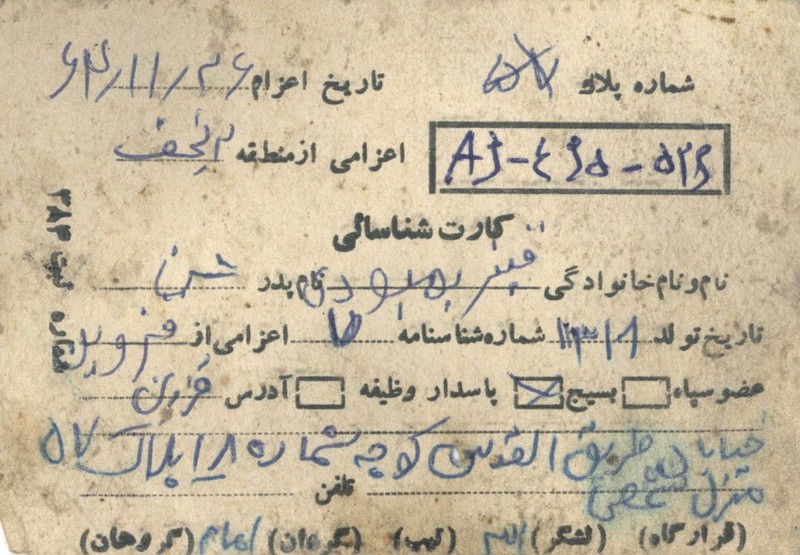 شماره پلاک ۵۷ تاریخ اعزام ۶۳/۱۱/۲۶
اعزامی از منطقه ۲ نجف
AJ-۴۶۵-۵۲۶
کارت شناسائی
نام و نام خانوادگی قنبر بهبودی نام پدر حسن
تاریخ تولد شماره شناسنامه ۷ اعزامی از قزوین
عضو سپاه بسیج پاسدار وظیفه آدرس قزوین
خیابان طریق القدس کوچه شماره ۱۸ پلاک ۵۷
منزل شخصی تلفن
(قرارگاه) (لشگر) (تیپ) (گردان) امام (گروهان)
شماره ثبت ۳۸۴